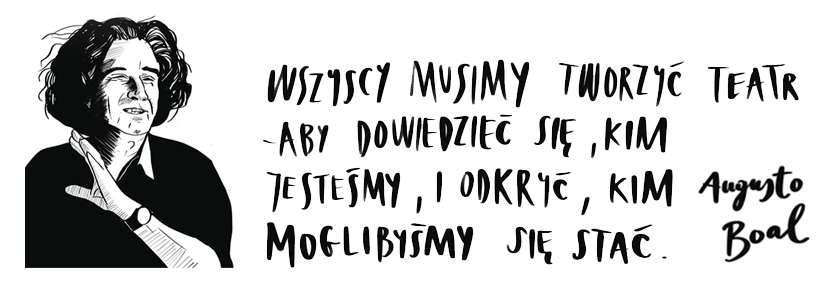 WSZYSCY MUSIMY TWORZYĆ TEATR
-ABY DOWIEDZIEĆ SIĘ, KIM
JESTEŚMY, I ODKRYĆ, KIM
MOGLIBYŚMY SIĘ STAĆ.
Augusto
Boal